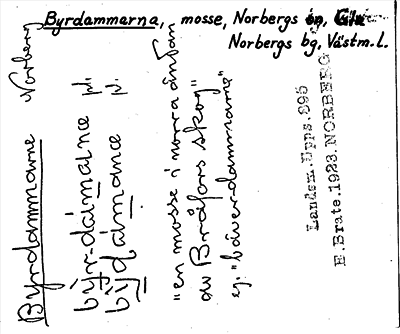 Byrdammarna, mosse, Norbergs sn,
Norbergs bg, Västm.l.
Byrdammarne Norberg
bỳr-dám̱a̱rnæ pl.
bỳḍám̱a̱næ pl.
"en mosse i norra ändan
av Bråfors skog"
ej. "bäverdammarne"
Landsm.Upps.895
E.Brate.1923.NORBERG